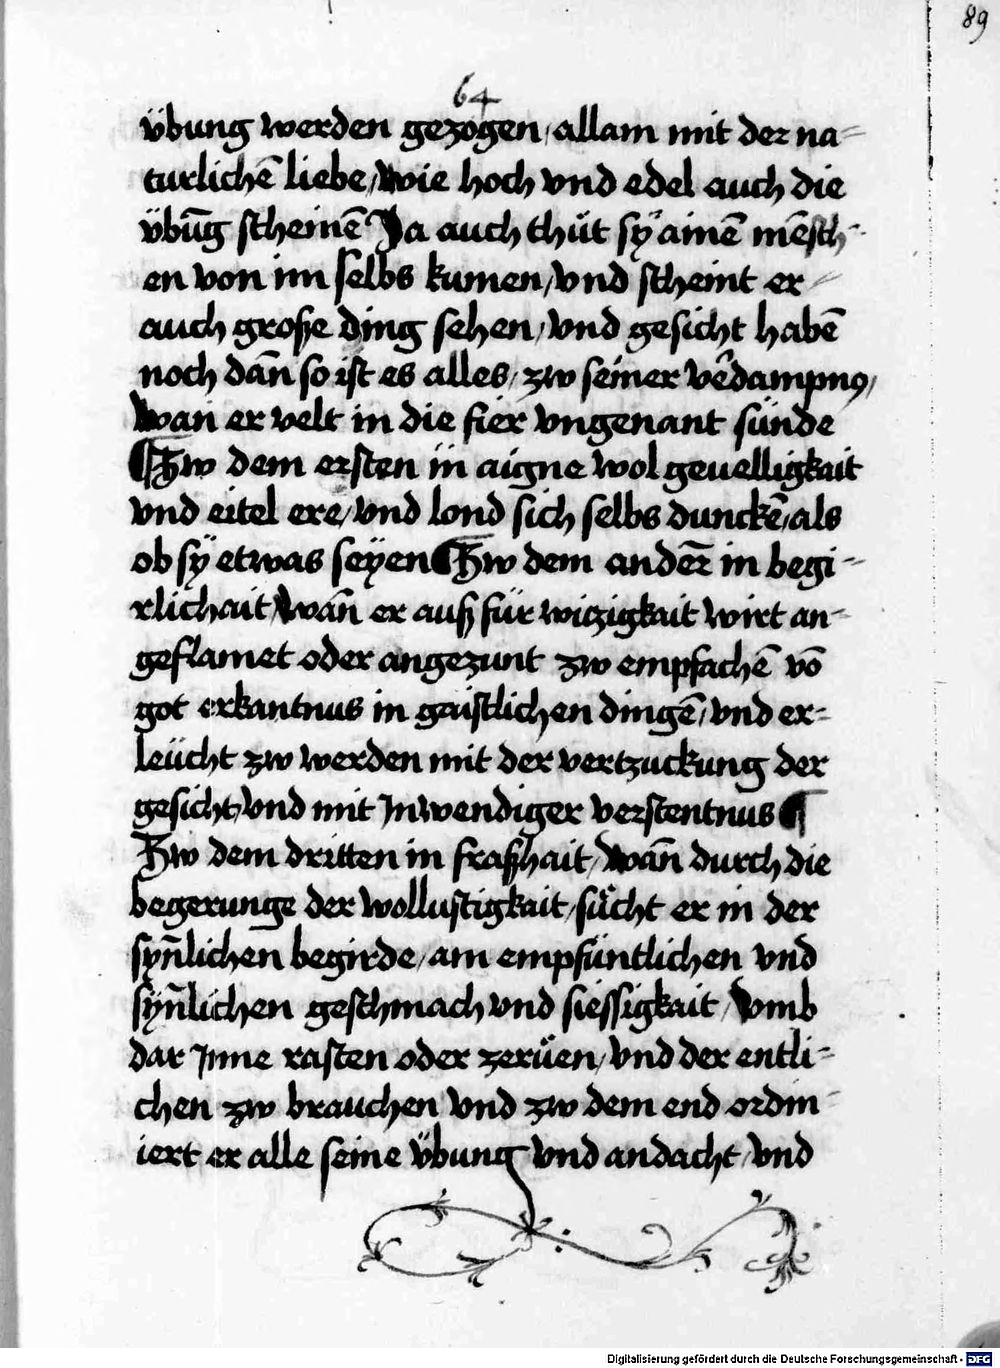 89
64
übung werden gezogen / allain mit der na=
turlichē liebe / wie hoch vnd edel auch die
übūg scheinē Ja auch thůt sÿ ainē mēsch=
en von im selbs kumen / vnd scheint er
auch große ding sehen / vnd gesicht habē
noch dan̄ so ist es alles / zw seiner v̄dampnꝯ /
wan er velt in die fier vngenant sünde
¶ Zw dem ersten in aigne wol geuelligkait
vnd eitel ere / vnd lond sich selbs dunckē / als
ob sÿ etwas seÿen ¶ Zw dem anderꝫ in begi=
rlichait / wan̄ er auß für witzigkait wirt an=
geflamet oder angezunt zw empfachē vō
got erkantnus in gaistlichen dingē / vnd er=
leücht zw werden mit der vertzuckung der
gesicht / vnd mit Jnwendiger verstentnus ¶
Zw dem dritten in fraßhait / wan̄ durch die
begerunge der wollustigkait / sůcht er in der
syn̄lichen begirde / am empfüntlichen vnd
syn̄lichen geschmach vnd siessigkait / vmb
dar Jnne rasten oder zerůen / vnd der entli=
chen zw brauchen vnd zw dem end ordin
iert er alle seine übung vnd andacht / vnd
Digitalisierung gefördert durch die Deutsche Forschungsgemeinschaft - DFG